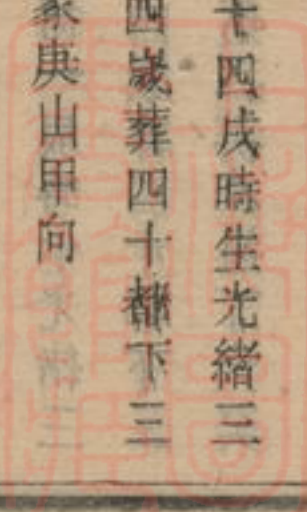 十四戌時生光緒三
四歲葬四十都下三
家庚山甲向